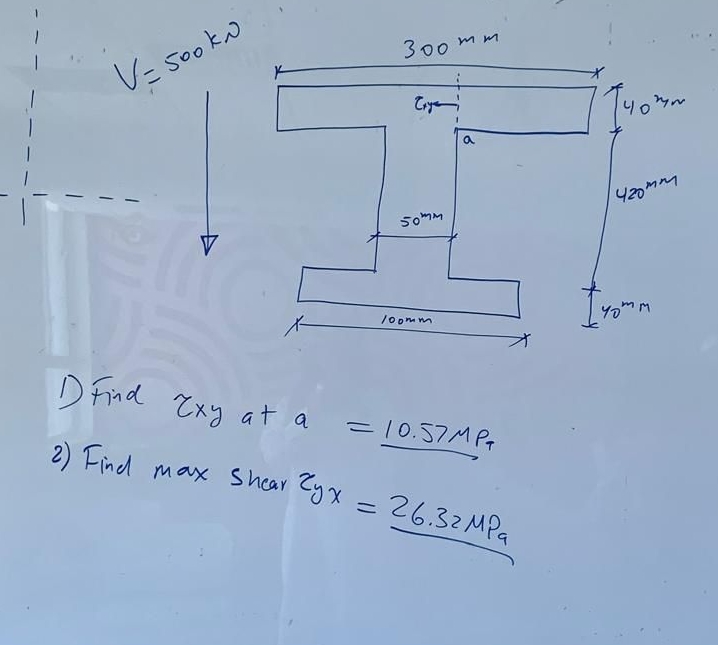 V=500kN
300mm
τxy
a
40mm
420mm
50mm
40mm
100mm
1) Find τxy at a = 10.57MPa
2) Find max shear τyx = 26.32MPa